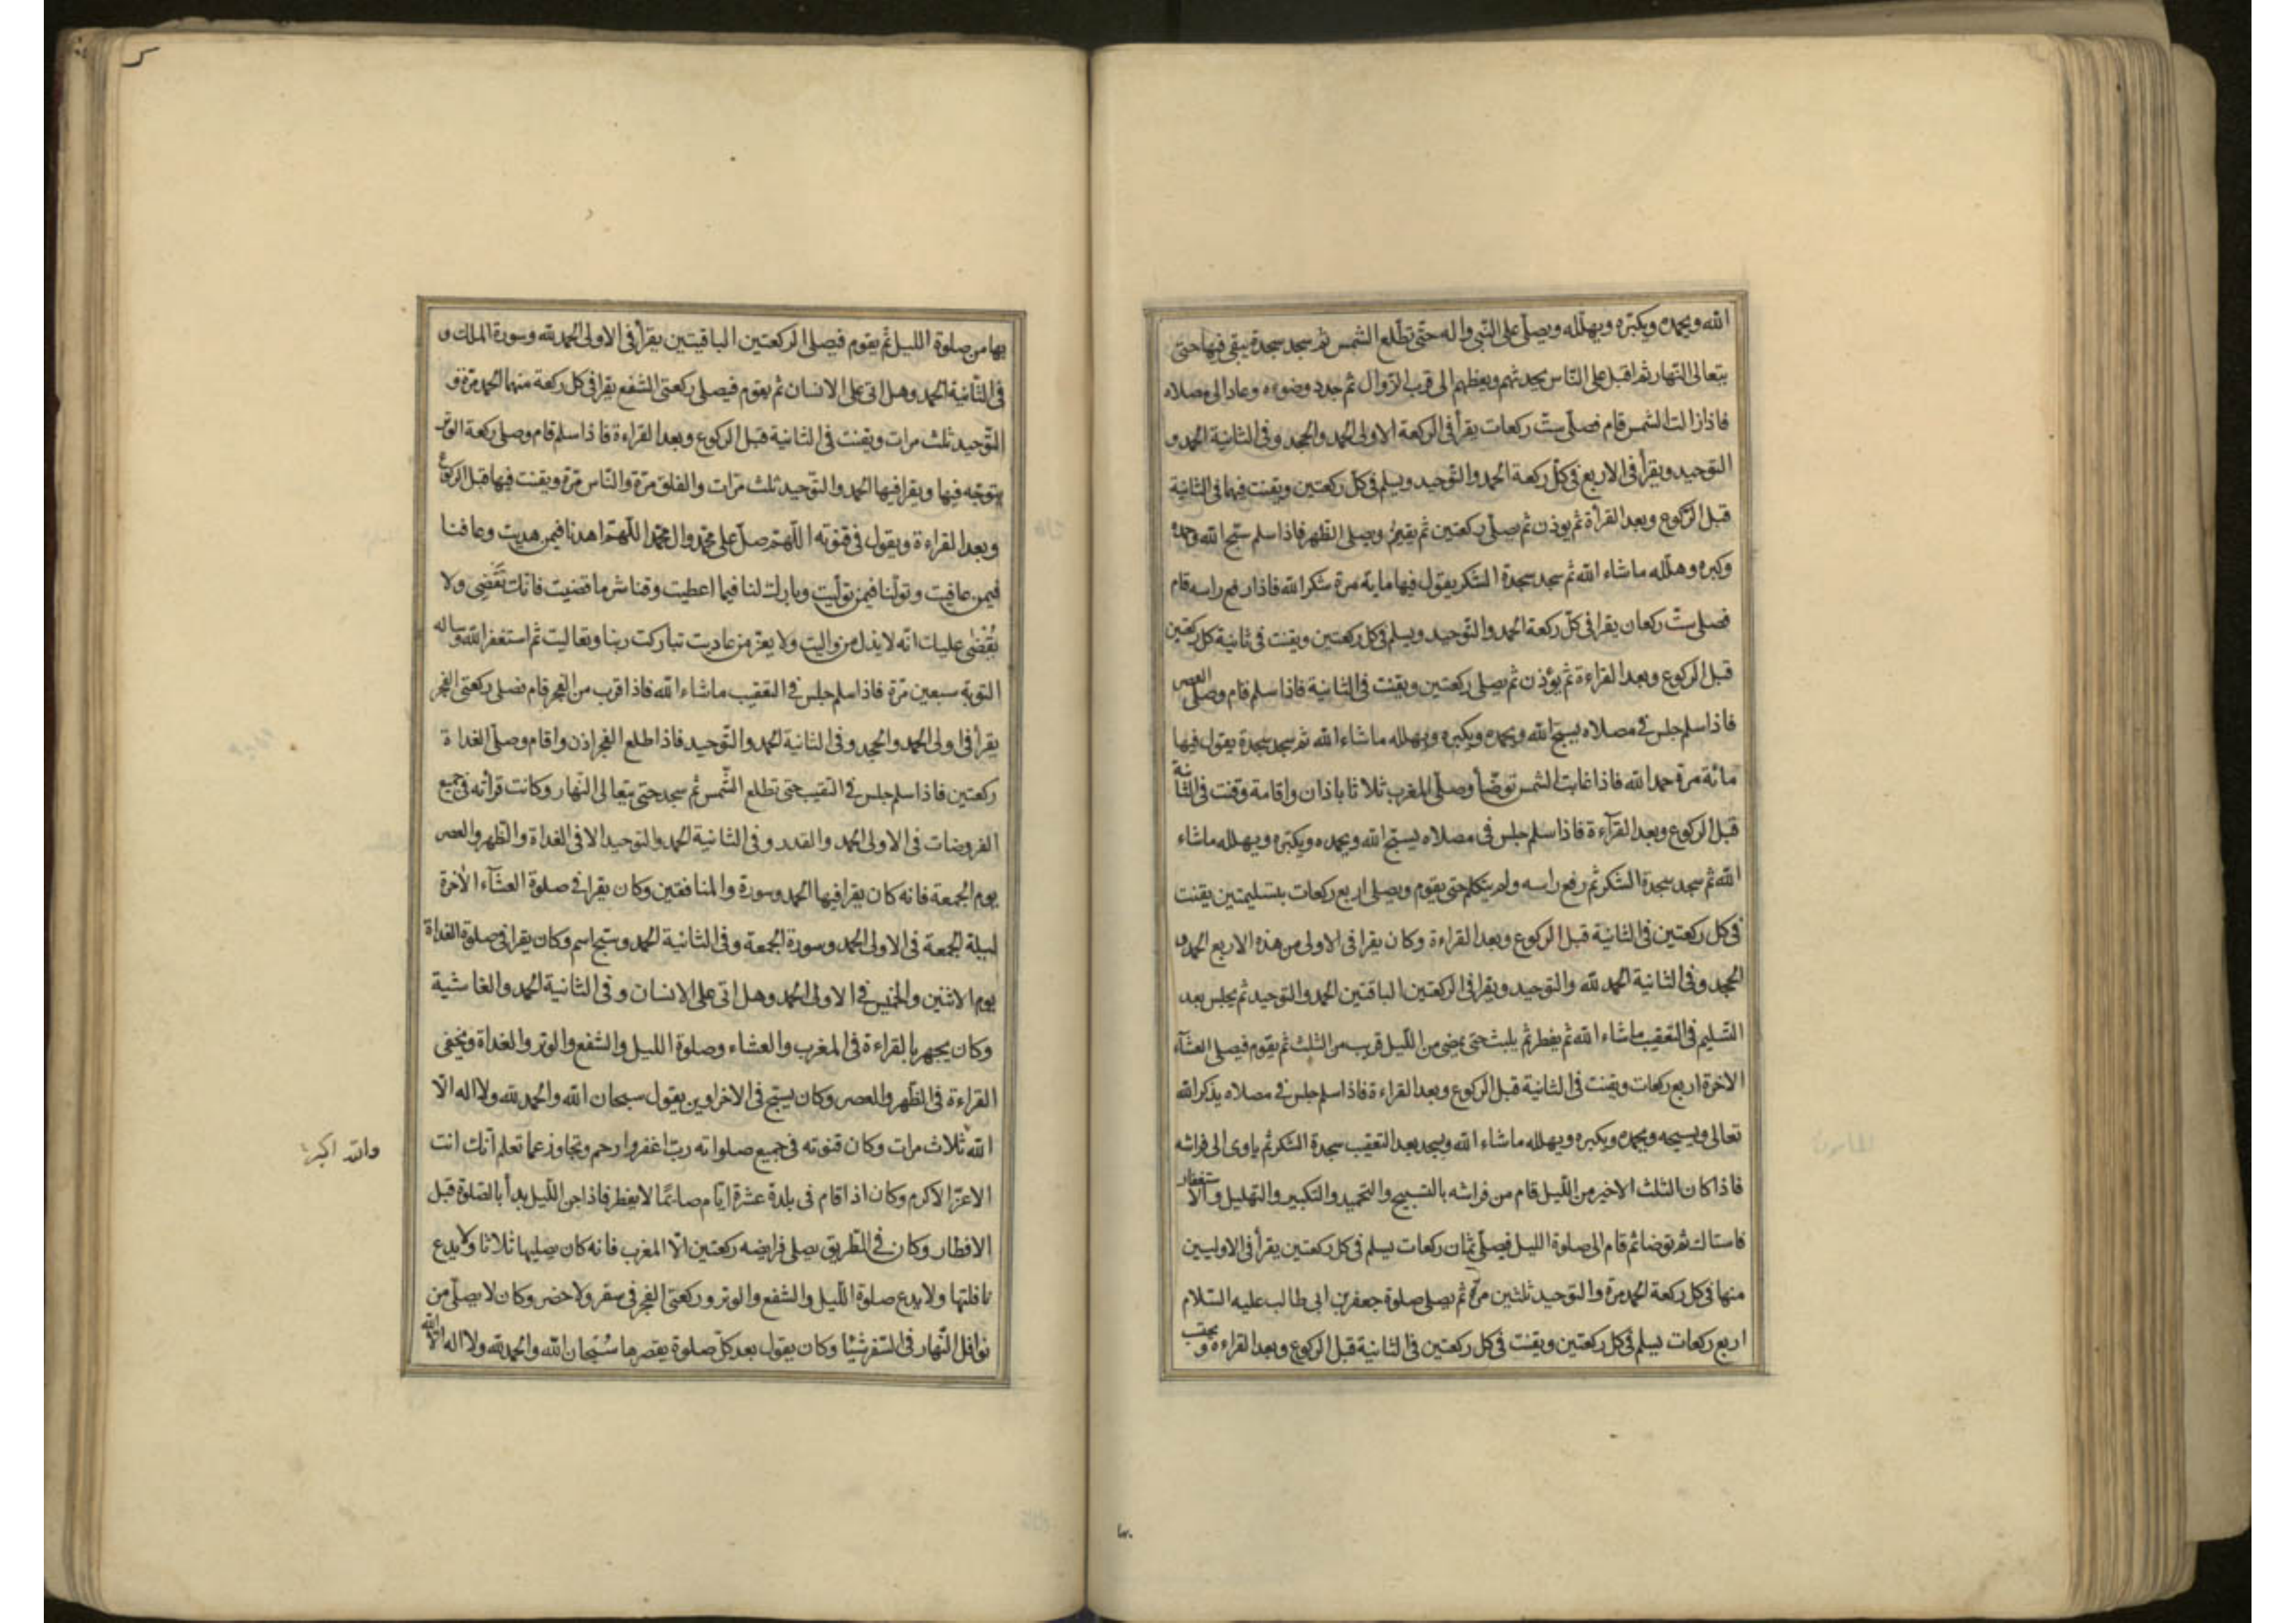 الله ويحمده ويكبره ويهلله ويصلّى على النّبى واله حتّى تطلع الشمس ثم سجد سجدة يبقى فيها حتى
يتعالى النّهار ثم اقبل على النّاس يحدثهم ويعظهم الى قرب الزّوال ثم جدد وضوءه وعاد الى مصلاه
فاذا زالت الشمس قام فصلّى ستّ ركعات يقرأ فى الركعة الاولى الحمد والجحد وفى الثانية الحمد و
التوحيد ويقرأ فى الاربع فى كلّ ركعة الحمد والتّوحيد ويسلم فى كلّ ركعتين ويقنت فيهما فى الثانية
قبل الرّكوع وبعد القرأة ثم يوذن ثم يصلّى ركعتين ثم يقيم ويصلى الظهر فاذا سلم سبّح الله وحمده
وكبره وهلّله ماشاء الله ثم سجد سجدة الشكر يقول فيها ماية مرة شكرا لله فاذا رفع راسه قام
فصلى ستّ ركعات يقرا فى كلّ ركعة الحمد والتّوحيد ويسلم فى كل ركعتين ويقنت فى ثانية كل ركعتين
قبل الركوع وبعد القراءة ثم يؤذن ثم يصلى ركعتين ويقنت فى الثانية فاذا سلم قام وصلى العصر
فاذا سلم جلس فى مصلاه يسبّح الله ويحمده ويكبره ويهلله ماشاء الله ثم سجد سجدة يقول فيها
مائة مرة حمدا لله فاذا غابت الشمس توضّأ وصلّى المغرب ثلاثا باذان واقامة وقنت فى الثانية
قبل الركوع وبعد القرآءة فاذا سلم جلس فى مصلاه يسبّح الله ويحمده ويكبّره ويهلله ماشاء
الله ثم سجد سجدة الشكر ثم رفع راسه ولم يتكلم حتى يقوم ويصلى اربع ركعات بتسليمتين يقنت
فى كل ركعتين فى الثانية قبل الركوع وبعد القراءة وكان يقرا فى الاولى من هذه الاربع الحمد و
الجحد وفى الثانية الحمد لله والتوحيد ويقرا فى الركعتين الباقتين الحمد والتوحيد ثم يجلس بعد
التّسليم فى التعقيب ماشاء الله ثم يفطر ثم يلبث حتى يمضى من اللّيل قريب من الثلث ثم يقوم فيصلى العشآء
الاخرة اربع ركعات ويقنت فى الثانية قبل الركوع وبعد القراءة فاذا سلم جلس فى مصلاه يذكر الله
تعالى ويسبحه ويحمده ويكبره ويهلله ماشاء الله ويسجد بعد التعقيب سجدة الشكر ثم ياوى الى فراشه
فاذا كان الثلث الاخير من اللّيل قام من فراشه بالتسبيح والتحميد والتكبير والتهليل والاستغفار
فاستاك ثم توضا ثم قام الى صلوة الليل فيصلّى ثمان ركعات يسلم فى كل ركعتين يقرأ فى الاوليين
منها فى كل ركعة الحمد مرة والتوحيد ثلثين مرّة ثم يصلى صلوة جعفر بن ابى طالب عليه السّلام
اربع ركعات يسلم فى كل ركعتين ويقنت فى كل ركعتين فى الثانية قبل الركوع وبعد القراءة ويحتسب
بها من صلوة الليل ثم يقوم فيصلى الركعتين الباقيتين يقرأ فى الاولى الحمد لله وسورة الملك و
فى الثّانية الحمد وهل اتى على الانسان ثم يقوم فيصلى ركعتى الشفع يقرا فى كل ركعة منهما الحمد مرّة و
التّوحيد ثلث مرات ويقنت فى الثانية قبل الركوع وبعد القراءة فاذا سلم قام وصلى ركعة الوتر
يتوجّه فيها ويقرا فيها الحمد والتوحيد ثلث مرّات والفلق مرّة والنّاس مرّة ويقنت فيها قبل الركوع
وبعد القراءة ويقول فى قنوته اللّهم صلّ على محمّد وال محمّد اللّهم اهدنا فيمن هديت وعافنا
فيمن عافيت وتولّنا فيمن تولّيت وبارك لنا فيما اعطيت وقنا شر ما قضيت فانّك تَقضِى ولا
يُقْضٰى عليك انّه لا يذل من واليت ولا يعزّ من عاديت تباركت ربنا وتعاليت ثم استغفر الله وساله
التوبة سبعين مرّة فاذا سلم جلس فى التعقيب ماشاء الله فاذا قرب من الفجر قام فصلى ركعتى الفجر
يقرأ فى اولى الحمد والجحد وفى الثانية الحمد والتّوحيد فاذا طلع الفجر اذن واقام وصلّى الغداة
ركعتين فاذا سلم جلس فى التقيب حتى تطلع الشّمس ثم سجد حتى يتعالى النّهار وكانت قرأته فى جميع
الفروضات فى الاولى الحمد والقدر وفى الثانية الحمد والتوحيد الا فى الغداة والظهر والعصر
يوم الجمعة فانه كان يقرا فيها الحمد وسورة والمنافقين وكان يقرا فى صلوة العشآء الأخرة
لبيلة الجمعة فى الاولى الحمد وسورة الجمعة وفى الثانية الحمد وسبّح اسم وكان يقرا فى صلوة الغداة
يوم الاثنين والخميس فى الاولى الحمد وهل اتى على الانسان وفى الثانية الحمد والغاشية
وكان يجهر بالقراءة فى المغرب والعشاء وصلوة الليل والشفع والوتر والغداة ويخفى
القراءة فى الظهر والعصر وكان يسبّح فى الاخراوين يقول سبحان الله والحمد لله ولا اله الّا
الله ثلاث مرات وكان قنوته فى جميع صلواته ربّ اغفر وارحم وتجاوز عما تعلم انّك انت
والله اكبر
الاعزّ الاكرم وكان اذا اقام فى بلدة عشرة ايّام صائمًا لا يفطر فاذا جن اللّيل بدأ بالصّلوة قبل
الافطار وكان فى الطّريق يصلى فرايضه ركعتين الّا المغرب فانه كان يصليها ثلاثا ولا يدع
نافلتها ولا يدع صلوة اللّيل والشفع والوتر وركعتى الفجر فى سفر ولا حضر وكان لا يصلّى من
نوافل النّهار فى السّفر شيئا وكان يقول بعد كلّ صلوة يقصرها سُبحان الله والحمد لله ولا اله الّا الله